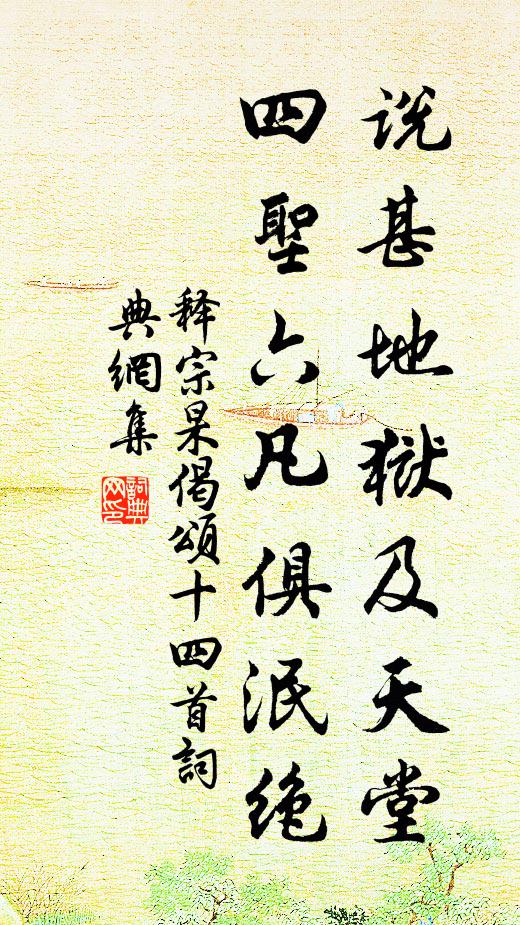 说甚地獄及天堂
四聖六凡俱泯绝
释宗杲偈頌十四首詞
典網集
詞典網印